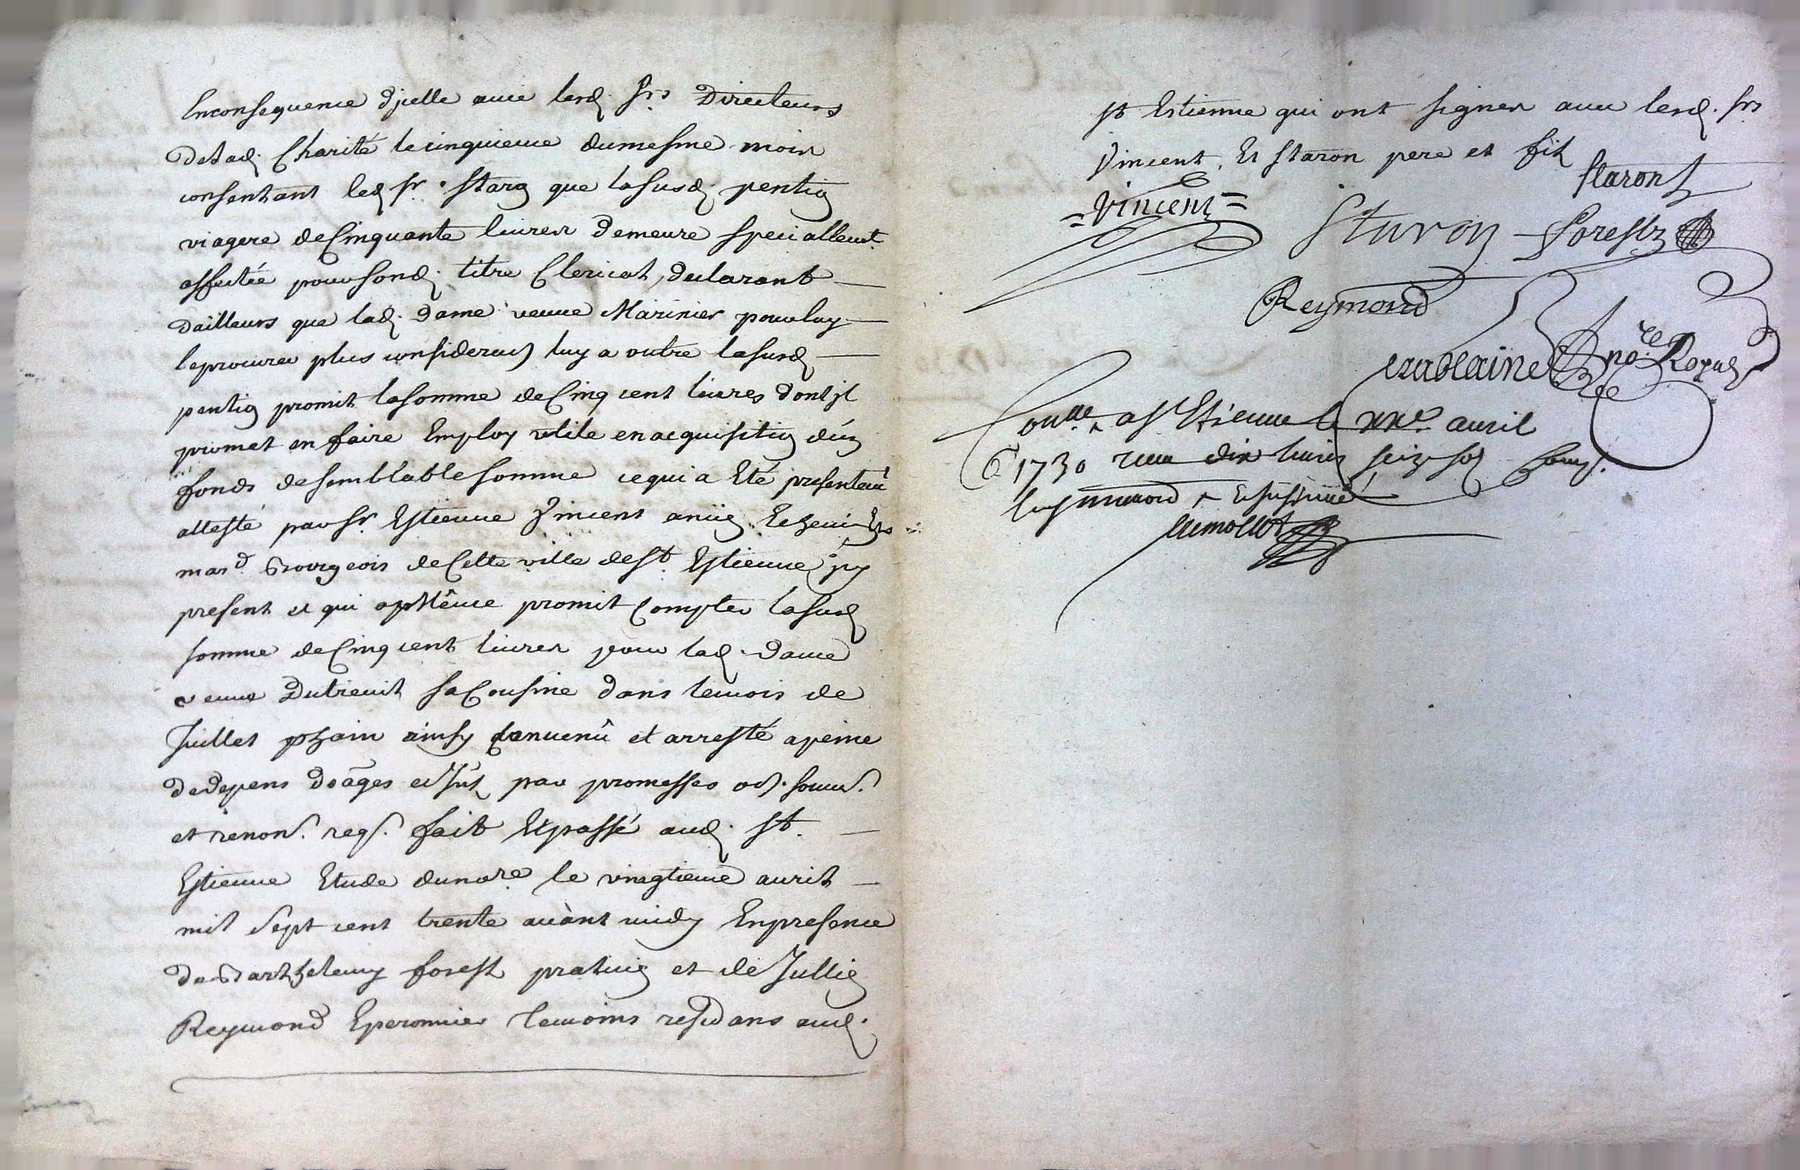 Enconsequence d'jcelle avec lesd. Srs Directeurs
delad. Charité le cinquieme dumesme mois
consentant led Sr. Staroȳ que lasusd. pentioȳ
viagere deCinquante livres demeure speciallemt.
affectée pour sond. titre Clerical, declarant
Dailleurs que lad. Dame veuve Marinier pourluy
leprocurer plus consideraƀ luy a outre lasusd
pentioȳ promit lasomme deCinq cent livres dont jl
promet en faire Employ utile en acquisitioȳ d'uȳ
fonds desemblable somme ce qui a Eté presentem̄t
attesté par Sr. Estienne Vincent ancieȳ Echevin Et
mard. Bourgeois deCette ville deSt. Estienne jcy
present et qui a promit compter lasusd
somme deCinq cent livres pour lad. Dame
veuve Dutreuil saCousine dans lemois de
Juillet pchain ainsy convenû et arresté apeine
dedepens doāges et Jnt. par promesses obl. soum.
et renon. req. fait Et passé aud. St.
Estienne Etude dunore. le vingtieme avril
mil sept cent trente avant midy Enpresence
deBarthelemy forest praticieȳ et de Jullieȳ
Reymond Eperonnier temoins residans aud.
St Estienne qui ont signer avec lesd. Srs
Vincent, Et Staron pere et fils
Staron f
=Vincent=
Staron
Forest
Reymond
nore. Royal
Conlle. a St Etienne le xxe avril
1730 receu dix livres seize sols